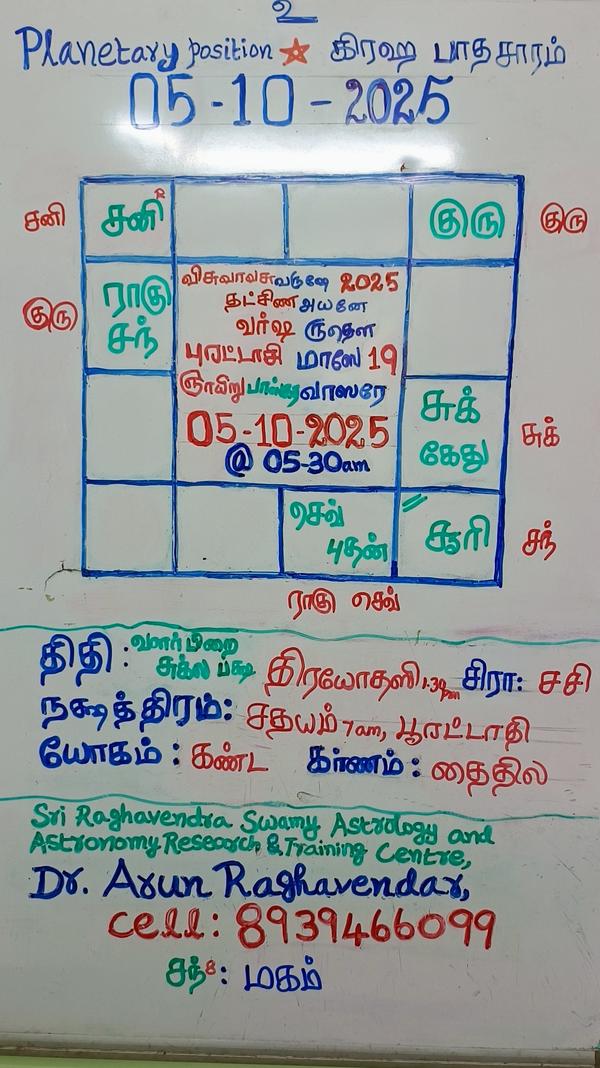 உ
Planetary position ★ கிரஹ பாதசாரம்
05-10-2025
சனி சனி R குரு குரு
குரு ராகு
சந்
விசுவாவசுவருஷே 2025
தட்சிண அயனே
வர்ஷ ருதௌ
புரட்டாசி மாஸே 19
ஞாயிறு வாஸரே
05-10-2025
@ 05-30am
சுக்
கேது சுக்
செவ்
புதன்
சூரி சந்
ராகு செவ்
திதி : வளர்பிறை
சுக்ல பக்ஷ
திரயோதஸி 1.30pm சிரா: சசி
நக்ஷத்திரம்: சதயம் 7am, பூரட்டாதி
யோகம் : கண்ட கர்ணம் : தைதில
Sri Raghavendra Swamy Astrology and
Astronomy Research & Training Centre,
Dr. Arun Raghavendar,
cell: 8939466099
சந் 8: மகம்